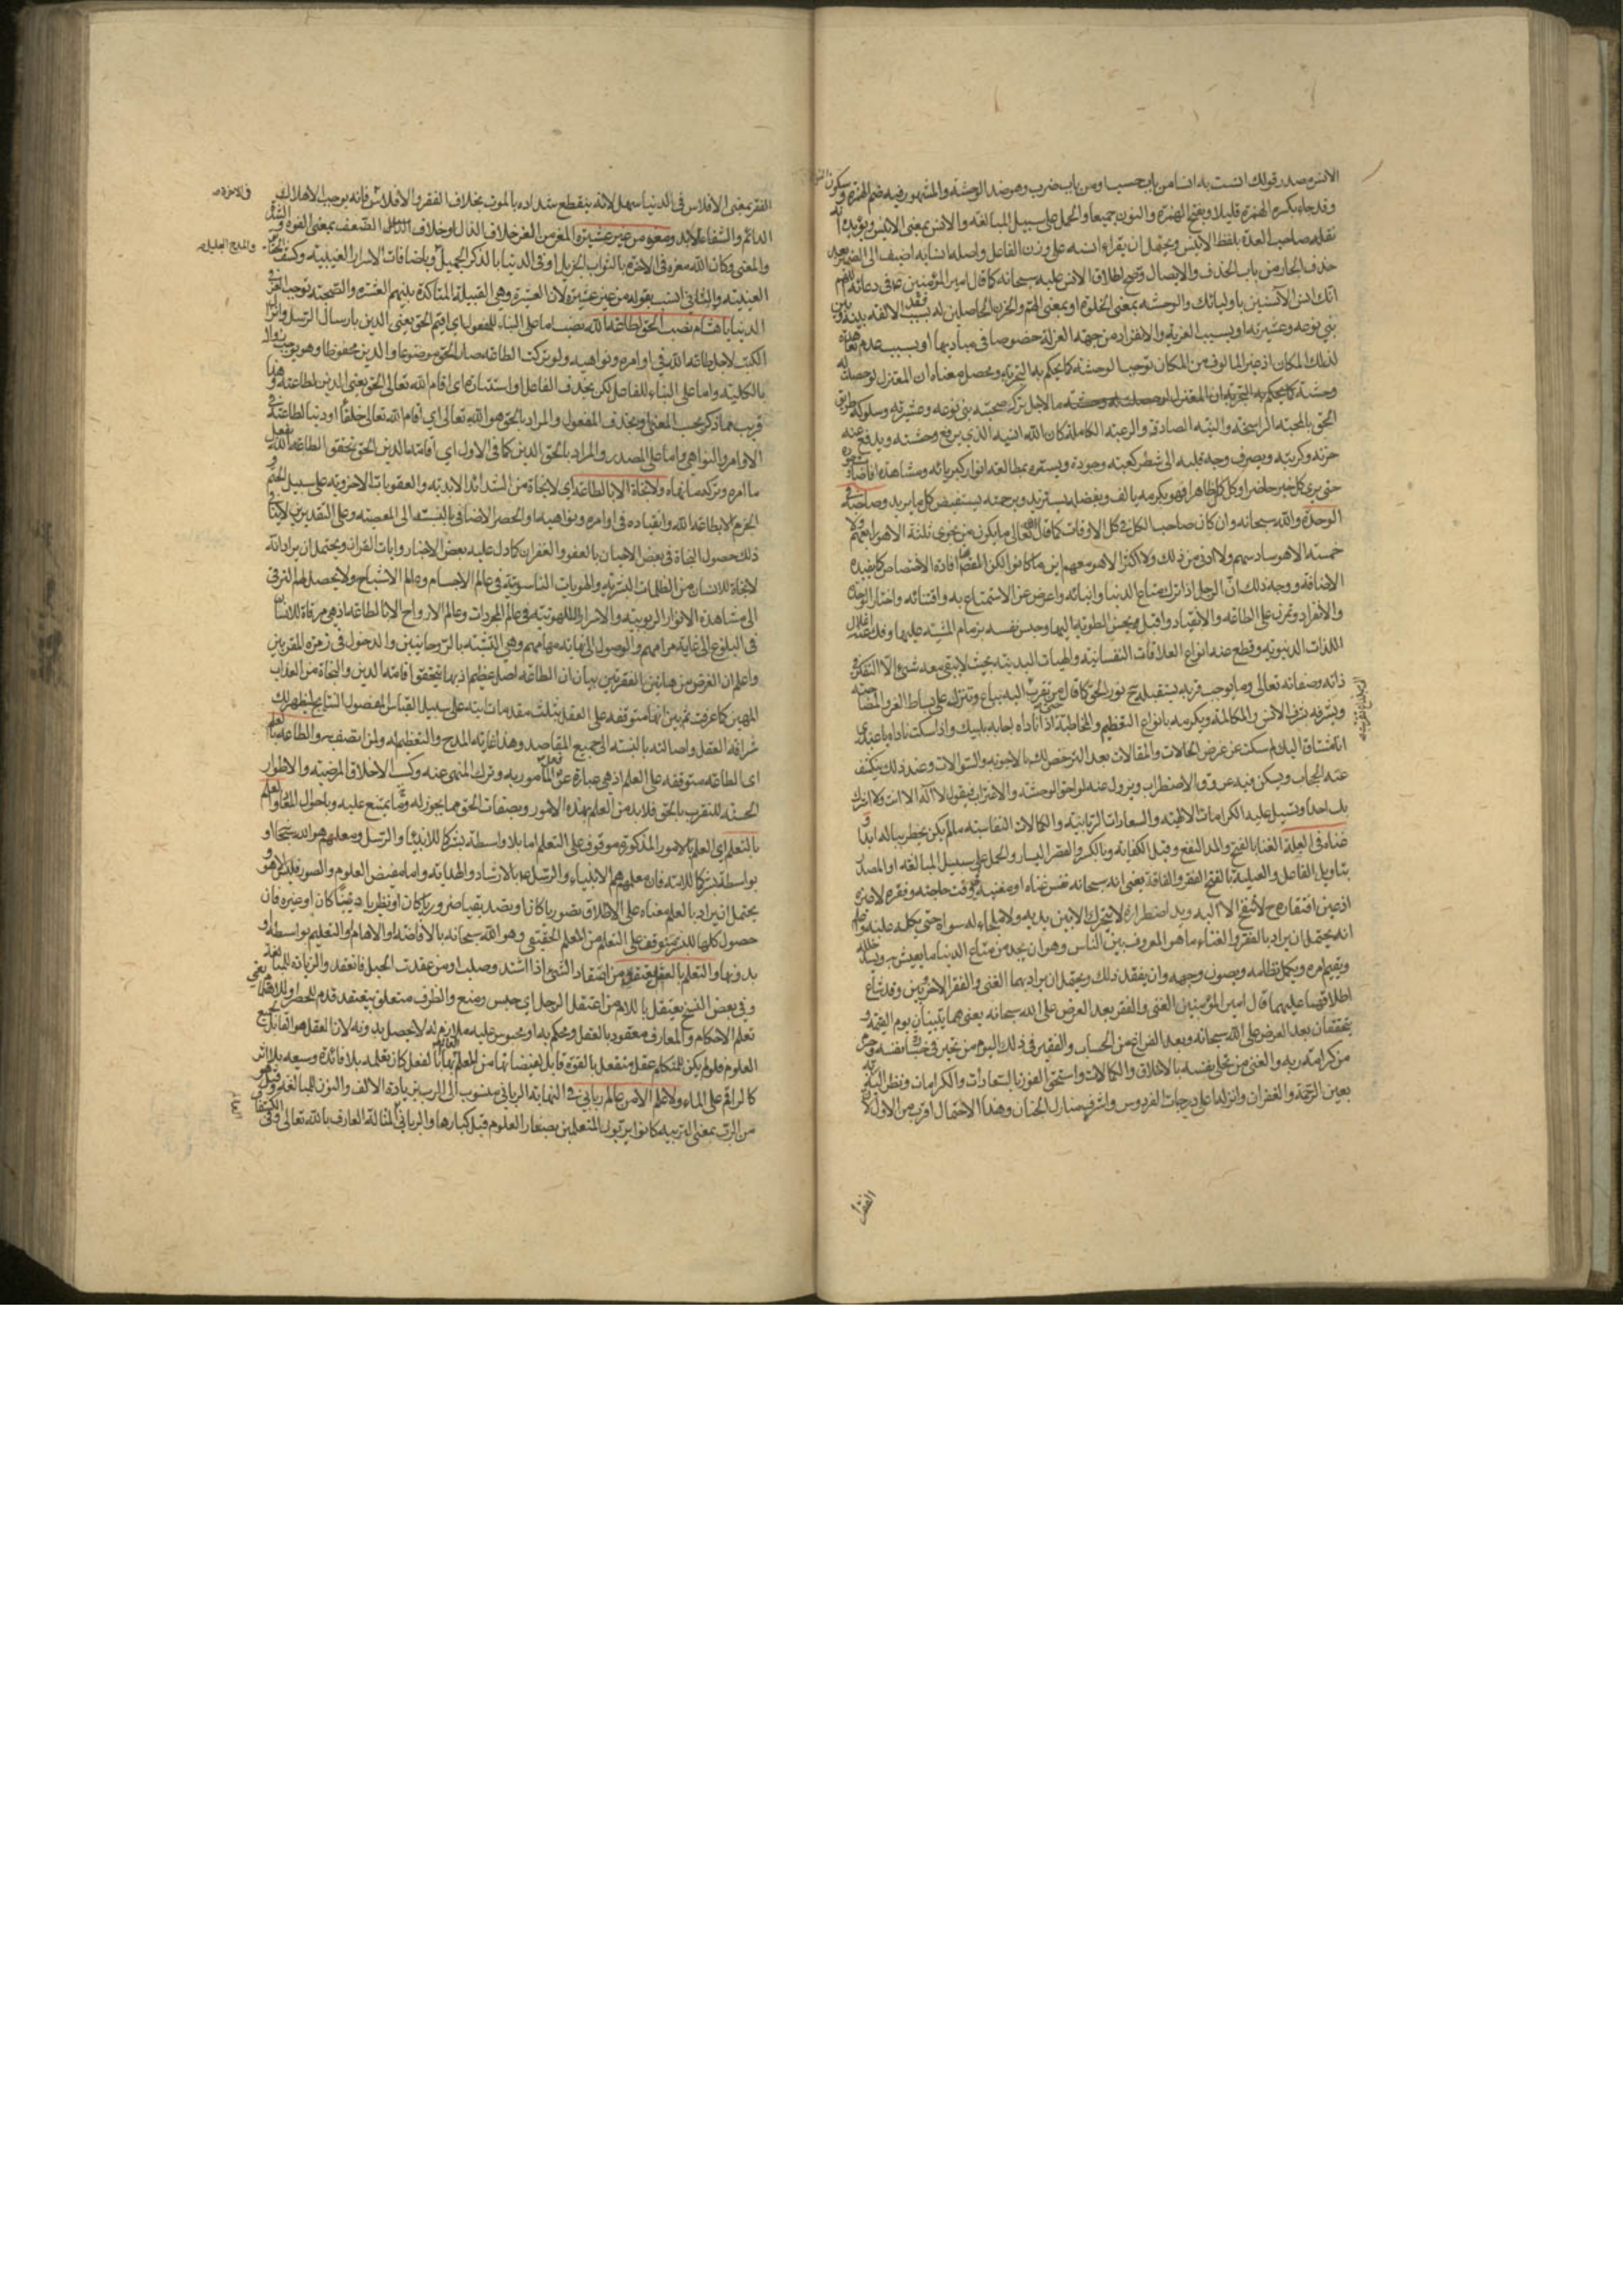 الانس مصدر قولك انست به انسا من باب حسب او من باب ضرب وهو ضد الوحشة والمشهور فيه ضم الهمزة وسكون النون
وقد جاء بكسر الهمزة قليلا وبفتح الهمزة والنون جميعا والحمل على سبيل المبالغة والانس بمعنى الانيس ويؤيده
نقله صاحب العدة بلفظ الانيس ويحتمل ان يقراء انسه على وزن الفاعل واصله انسا به اضيف الى الضمير بعد
حذف الجار من باب الحذف والايصال واطلاق الانس عليه سبحانه كما قال امير المؤمنين في دعائه اللهم
انك انس الآنسين باوليائك والوحشة بمعنى الخلوة او بمعنى الهم والحزن الحاصلين له بسبب فقد الالفة بينه وبين
بني نوعه وعشيرته او بسبب الغربة والانفراد من جهة العزلة خصوصا في مباديها او بسبب عدم
لذلك المكان اذ غير المألوف من المكان توجب الوحشة كما يحكم به التجربة ومحصل معناه ان المعتزل لو حصلت له
وحشة ما لاجل ترك صحبة بني نوعه وعشيرته وسلوكه طريق
الحق بالمحبة الراسخة والنية الصادقة والرغبة الكاملة كان الله انيسه الذي يرفع وحشته ويدفع عنه
حزنه وكربته ويصرف وجه قلبه الى شطر كعبة وجوده ويسره بمطالعة انوار كبريائه ومشاهدة
حتى يرى كل خير حاضرا وكل كمال ظاهرا فهو بكرمه يألف وبفضله يستزيد وبرحمته يستفيض كل ما يريد وصاحبه في
الوحدة والله سبحانه وان كان صاحب الكل في كل الاوقات كما قال الله تعالى ما يكون من نجوى ثلثة الا هو رابعهم ولا
خمسة الا هو سادسهم ولا ادنى من ذلك ولا اكثر الا هو معهم اين ما كانوا لكن المقصود افادة الاختصاص كما يفيده
الاضافة ووجه ذلك ان الرجل اذا ترك متاع الدنيا وابنائه واعرض عن الاستمتاع به واقتنائه واختار الوحدة
والانفراد وتمرن على الطاعة والانقياد واقبل بحسن الطوية اليها وحبس نفسه بزمام المشية عليها وفك عنقه اغلال
اللذات الدنيوية وقطع عنه انواع العلاقات النفسانية والهيات البدنية بحيث لا يبقى معه شيء الا التفكر في
ذاته وصفاته تعالى وما يوجب قربه يستقبله ح نور الحق كما قال من تقرب اليه بباع وتنزل على بساط العز والمصاحبة
ويشرفه شرف الانس والمكالمة ويكرمه بانواع التعظيم والمخاطبة حتى اذا ناداه اجابه بلبيك واذا سكت ناداه يا عبدي
انا مشتاق اليك لم سكت عن عرض الحالات والمقالات بعد الترخص لك بالاجوبة والسؤالات وعند ذلك ينكشف
عنه الحجاب ويسكن فيه عروق الاضطراب ويزول عنه لواحق الوحشة والاغتراب فيقول لا اله الا انت ولا اشرك
بك احدا وتسيل عليه الكرامات الالهية والسعادات الربانية والكمالات النفسانية ما لم يكن يخطر بباله ابدا
وغناه في العيلة الغنا بالفتح والمد النفع وقيل الكفاية وبالكسر والقصر اليسار والحمل على سبيل المبالغة او المصدر
بتاويل الفاعل والعيلة بالفتح الفقر والفاقة يعني انه سبحانه نفس غناه او مغنيه في وقت حاجته وفقره لا غيره
اذ حين افتقاره ح لا يلتجئ الا اليه ويد اضطراره لا يتحرك الا بين يديه ولا ملجاء له سواه حتى يكله عليه
انه يحتمل ان يراد بالفقر والغناء ما هو المعروف بين الناس وهو ان يجد من متاع الدنيا ما يعيش به ويسد خلله
ويقيم امره ويكمل نظامه ويصون وجهه وان يفقد ذلك ويحتمل ان يراد بهما الغنى والفقر الاخرويين وقد شاع
اطلاقهما عليهما قال امير المؤمنين الغنى والفقر بعد العرض على الله سبحانه يعني هما يتبينان يوم القيمة و
يتحققان بعد العرض على الله سبحانه وبعد الفراغ من الحساب والفقير في ذلك اليوم من نفسه وحرم
من كرامة ربه والغني من تحلى نفسه بالاخلاق والكمالات واستحق الفوز بالسعادات والكرامات ونظر اليه ربه
بعين الرحمة والغفران وانزله على درجات الفردوس واشرف منازل الجنان وهذا الاحتمال اقرب من الاول لان
الفقر
الفقر بمعنى الافلاس في الدنيا سهل لانه ينقطع شدائده بالموت بخلاف الفقر والافلاس في الآخرة فانه يوجب الاهلاك
الدائم والشقاء الابد ومعزه من غير عشيرة المعز من العز خلاف الذل او خلاف الضعف بمعنى القوة والشدة
والمعنى وكان الله معزه في الاخرة بالثواب الجزيل او في الدنيا بالذكر الجميل والمدح الجليل وباضافات الاسرار الغيبية وكشف
العينية والثاني انسب بقوله من غير عشيرة لان العشيرة وهي القبيلة المتأكدة بينهم العشرة والصحبة توجب العز في
الدنيا يا هشام نصب الحق لطاعة الله نصب اما على البناء للمفعول اي اقيم الحق يعني الدين بارسال الرسل وانزال
الكتب لاجل طاعة الله في اوامره ونواهيه ولو تركت الطاعة صار الحق موضوعا والدين محفوظا وهو يوجب زواله
بالكلية واما على البناء للفاعل لكن بحذف الفاعل او استتاره اي اقام الله تعالى الحق يعني الدين لطاعته وهذا
قريب مما ذكر بحسب المعنى او بحذف المفعول والمراد بالحق هو الله تعالى اي اقام الله تعالى خلقا او دينا لطاعته في
الاوامر والنواهي واما على المصدر والمراد بالحق الدين كما في الاول اي اقامة الدين الحق بتحقق الطاعة لله بفعل
ما امره وترك ما نهاه ولا نجاة الا بالطاعة اي لا نجاة من الشدائد الابدية والعقوبات الاخروية على سبيل الحتم و
الجزم الا بطاعة الله وانقياده في اوامره ونواهيه والحصر الاضافي بالنسبة الى المعصية وعلى التقديرين لا ينافي
ذلك حصول النجاة في بعض الاحيان بالعفو والغفران كما دل عليه بعض الاخبار وايات القران ويحتمل ان يراد انه
لا نجاة للانسان من الظلمات البشرية والهويات الناسوتية في عالم الاجسام وعالم الاشباح ولا يحصل له الترقي
الى مشاهدة الانوار الربوبية والاسرار اللاهوتية في عالم المجردات وعالم الارواح الا بالطاعة اذ هي مرقاة للانسان
في البلوغ الى غاية مرامهم والوصول الى نهاية مهامهم وهي التشبه بالروحانيين والدخول في زمرة المقربين
واعلم ان الغرض من هاتين الفقرتين بيان ان الطاعة اصل عظيم اذ بها يتحقق اقامة الدين والنجاة من العذاب
المهين كما عرفت ثم بين انها متوقفة على العقل بثلث مقدمات مبنية على سبيل القياس المفصول النتايج ليظهر لك
شرافة العقل واصالته بالنسبة الى جميع المقاصد وهذا غاية المدح والتعظيم له ولمن اتصف به والطاعة بالعلم
اي الطاعة متوقفة على العلم اذ هي عبارة عن فعل المأمور به وترك المنهي عنه وكسب الاخلاق المرضية والاطوار
الحسنة للتقرب بالحق فلا بد من العلم بهذه الامور وبصفات الحق مما يجوز له ومما يمتنع عليه وباحوال المعاد والعلم
بالتعلم اي العلم بالامور المذكورة موقوف على التعلم اما بلا واسطة بشر كما للانبياء والرسل ومعلمهم هو الله سبحانه او
بواسطة بشر كما للامة فان معلمهم هم الانبياء والرسل بالارشاد والهداية واما مفيض العلوم والصور فليس الا هو و
يحتمل ان يراد بالعلم معناه على الاطلاق تصوريا كان او تصديقيا ضروريا كان او نظريا دينيا كان او غيره فان
حصول كلها للبشر متوقف على التعلم من المعلم الحقيقي وهو الله سبحانه بالافاضة والالهام والتعليم بواسطة او
بدونها والتعلم بالعقل يعتقد من اعتقاد الشيء اذا اشتد وصلب او من عقدت الحبل فانعقد والزيادة للمبالغة
وفي بعض النسخ يعتقل باللام من اعتقل الرجل اي حبس ومنع والظرف متعلق بيعتقد قدم للحصر او للاهتمام يعني
تعلم الاحكام والمعارف معقود بالعقل ومحكم به او محبوس عليه ملازم له لا يحصل بدونه لان العقل هو القابل لجميع
العلوم فلو لم يكن للمتكلم عقل منفعل بالقوة قابل لفيضانها من المعلم بالفعل كان تعليمه بلا فائدة وسعيه بلا اثر
كالراقم على الماء ولا علم الا من عالم رباني في النهاية الرباني منسوب الى الرب بزيادة الالف والنون للمبالغة وقيل هو
من الرب بمعنى التربية كانوا يربون المتعلمين بصغار العلوم قبل كبارها والرباني المتاله العارف بالله تعالى وفي